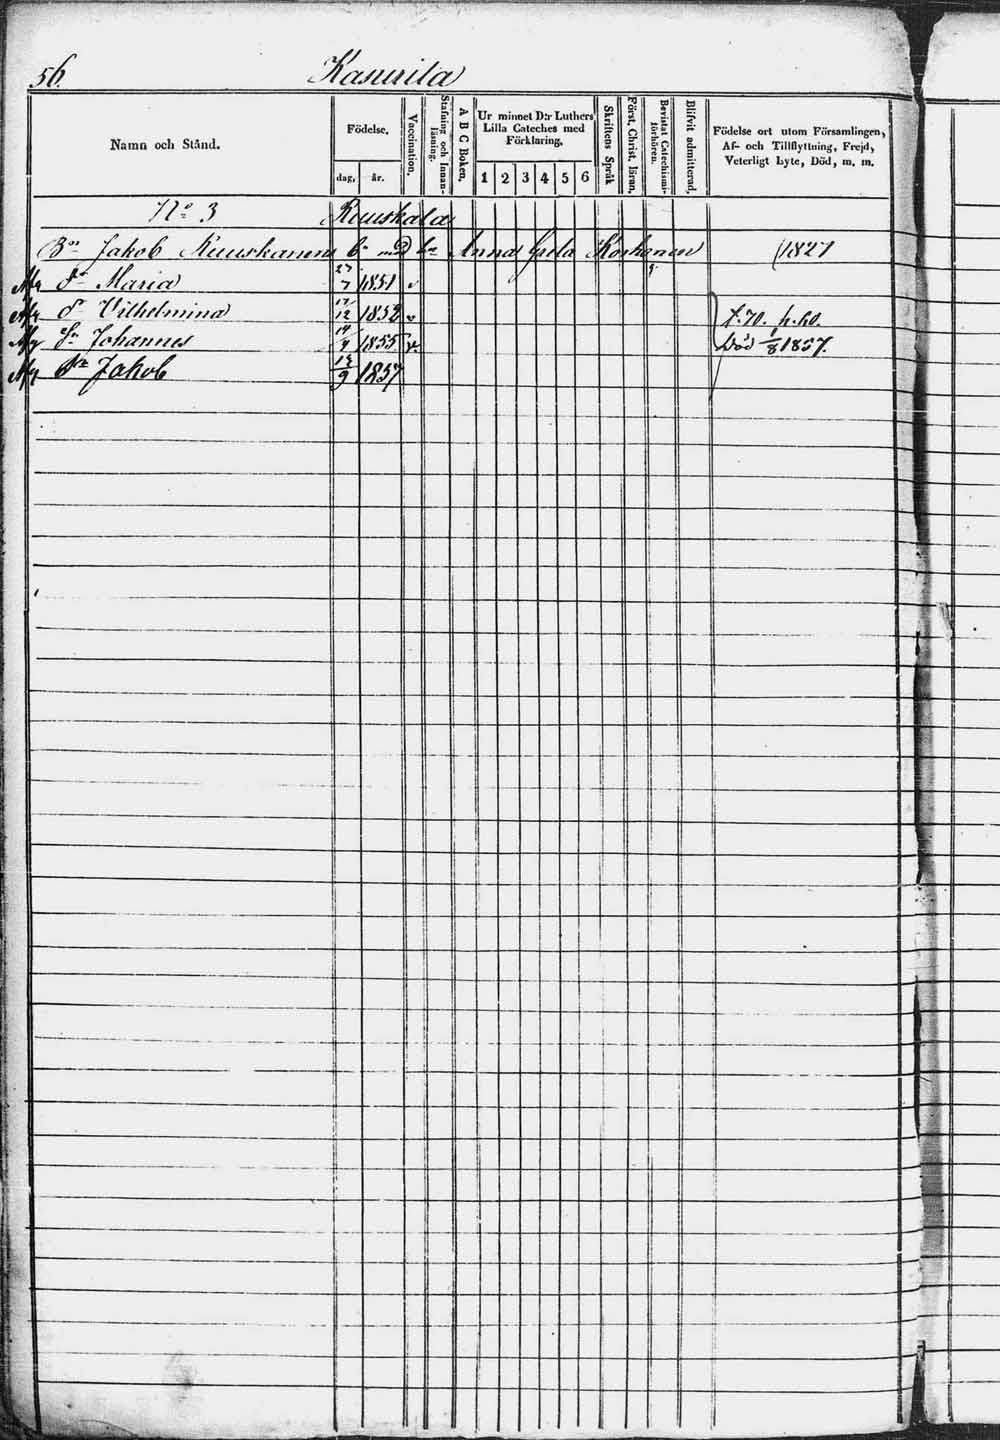 56. Kasurila
Namn och Stånd.
Födelse.
dag.
år.
Vaccination.
Stafning och Innanläsning.
A B C Boken.
Ur minnet D:r Luthers Lilla Cateches med Förklaring.
1 2 3 4 5 6
Skriftens Språk
Först. Christ. läran.
Bevistat Catechismiförhören.
Blifvit admitterad.
Födelse ort utom Församlingen,
Af- och Tillflyttning, Frejd,
Veterligt Lyte, Död, m. m.
N:o 3 Ruuskala
Jakob Ruuskanen med Anna Greta Korhonen 1827
Maria 27/7 1851 v
Vilhelmina 17/12 1852 v
Johannes 1855 v. Död 1/8 1857.
Jakob 13/9 1857